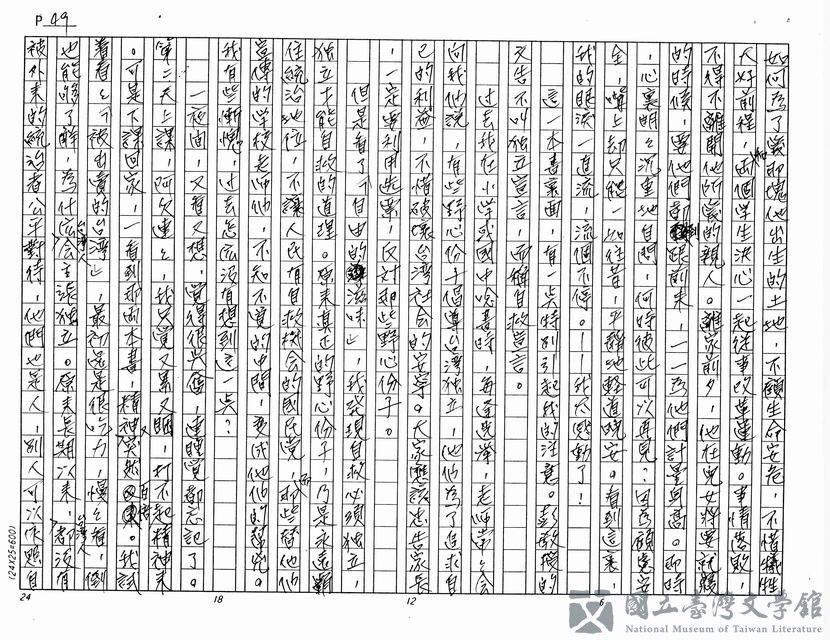 P 49
如何為了愛那塊他出生的土地，不顧生命安危，不惜犧牲
大好前程，和兩個學生決心一起從事改革運動。事情落敗，
不得不離開他所愛的親人。離家前夕，他在兒女將要就寢
的時候，要他們都到跟前來，一一為他們計量身高。那時
，心裏明明沉重地自問，何時彼此可以再見？因為顧慮安
全，嘴上却只能一如往昔，平靜地輕道晚安。看到這裏，
我的眼淚一直流，流個不停。——我太感動了！
這一本書裏面，有一點特別引起我的注意。彭教授的
文告不叫獨立宣言，而稱自救宣言。
過去我在小學或國中唸書時，每逢選舉，老師常常會
向我們說，有些野心份子倡導台灣獨立，他們為了追求自
己的利益，不惜破壞台灣社會的安寧。大家應該忠告家長
，一定要利用選票，反對那些野心份子。
但是看了「自由的滋味」，我發現自救必須獨立，
獨立才能自救的道理。原來真正的野心份子，乃是永遠霸
住統治地位，不讓人民有自救機會的國民黨，那些替他們
宣傳的學校老師們，不知不覺的中間，變成他們的幫兇。
我有些慚愧，過去怎麼沒有想到這一點？
一夜間，又看又想，覺得很興奮，連睡覺都忘記了。
第二天上課，阿欠連連，我只覺又累又睏，打不起精神來
。可是下課回家，一看到那兩本書，精神又突然百倍。我試
着看看「被出賣的台灣」，最初還是很吃力，慢慢看，倒
也能夠了解，為什麼台灣人會主張獨立。原來長期以來，台灣人都沒有
被外來的統治者公平對待，他們也是人，別人可以依照自
(24X25=600)
24
18
12
6
國立臺灣文學館
National Museum of Taiwan Literature